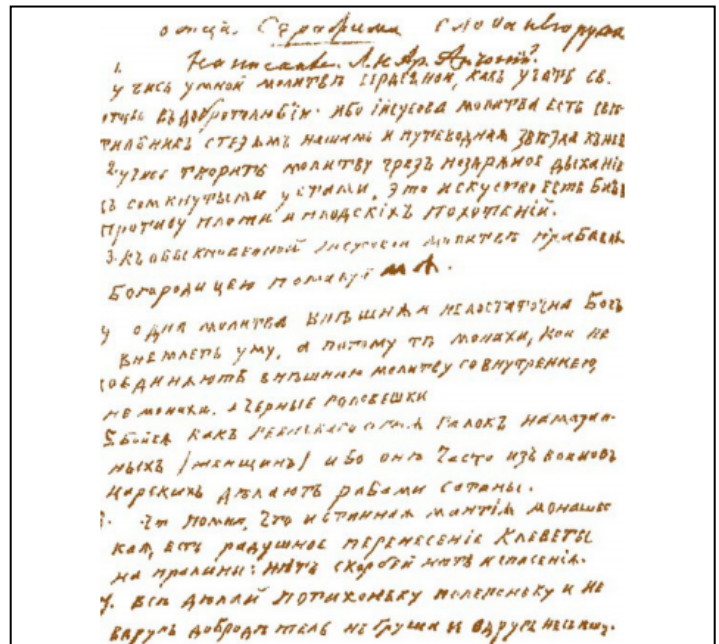 отца. Серафима
1. Написавъ.
учись умной молитвѣ сердечной, какъ учатъ св.
отцы въ добротолюбіи. ибо Іисусова молитва есть свѣ-
тильникъ стезямъ нашимъ и путеводная звѣзда къ небу
2. учись творить молитву чрезъ ноздряное дыханіе
съ сомкнутыми устами. это искуство есть бичь
противу плоти и плодскіхъ похотеній.
3. Къ обыкновенной Іисусовой молитвѣ прибавль
Богородицею помилуй мя.
4 одна молитва внѣшняя недостаточна Богъ
внемлетъ уму, а потому тѣ монахи, кои не
соединяютъ внѣшнюю молитву со внутреннею,
не монахи. а черные головешки
5. бойся какъ геенскаго огня галокъ намазан-
ныхъ (женщинъ) ибо онѣ часто изъ воиновъ
царскихъ дѣлаютъ рабами сатаны.
помни, что истинная мантія монашес
кая, есть радушное перенесеніе клеветы
на пралины: нѣтъ скорбей нѣтъ и спасенія.
7. все дѣлай потихоньку полегоньку и не
вдругъ добродѣтель не груша ее вдругъ не съѣшь.